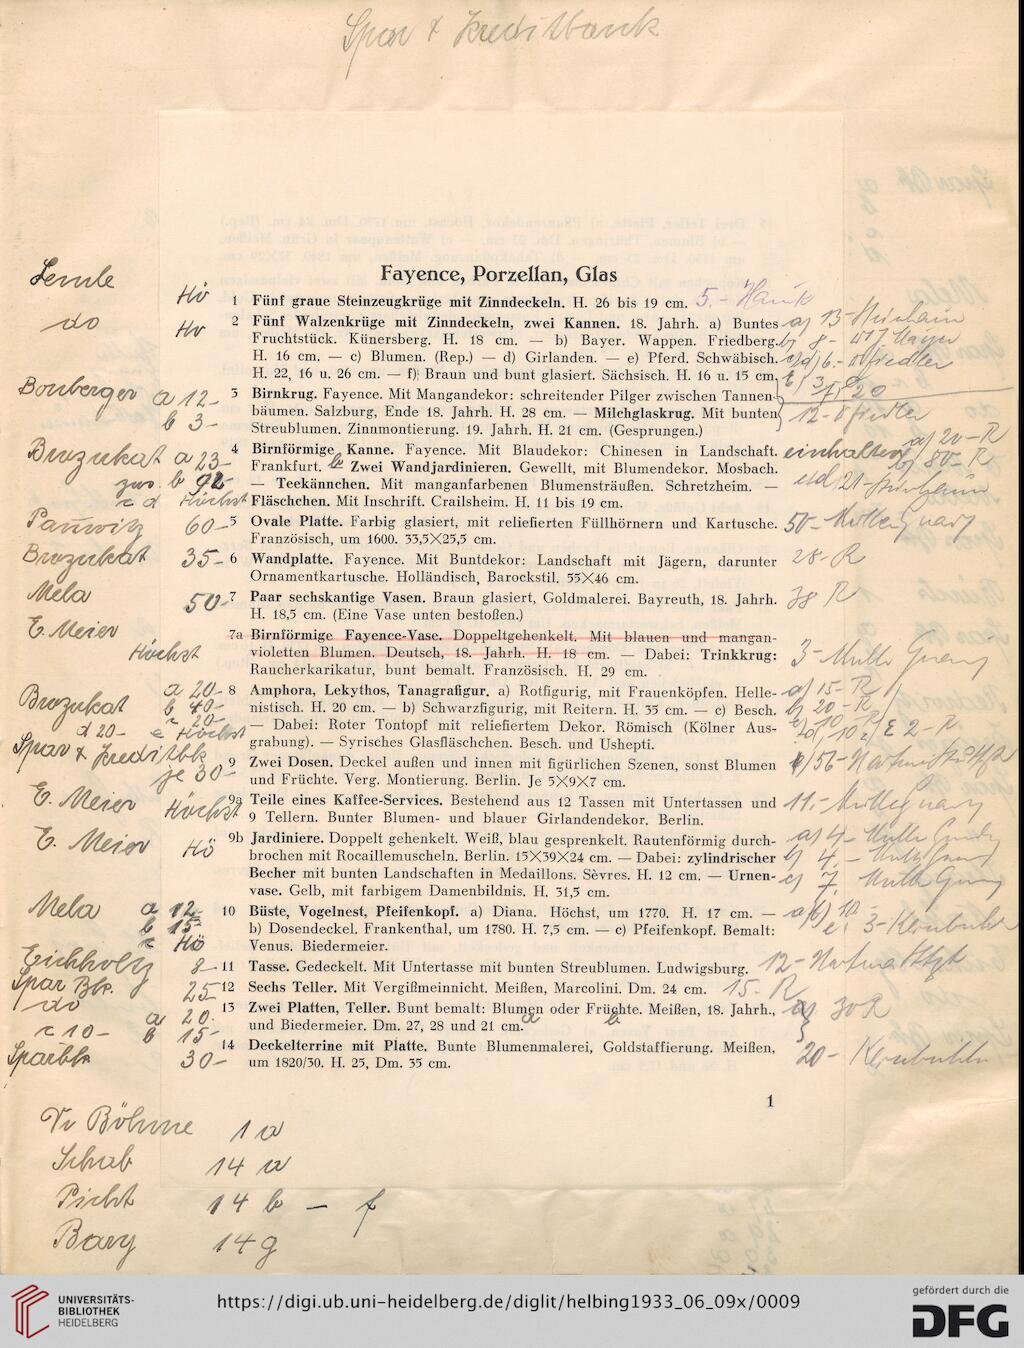 Spar & Kreditbank
Fayence, Porzellan, Glas
Lemle Hö 1 Fünf graue Steinzeugkrüge mit Zinndeckeln. H. 26 bis 19 cm. 5.- Hauk
do Hö 2 Fünf Walzenkrüge mit Zinndeckeln, zwei Kannen. 18. Jahrh. a) Buntes a) 13-
Fruchtstück. Künersberg. H. 18 cm. — b) Bayer. Wappen. Friedberg. b) 8-
H. 16 cm. — c) Blumen. (Rep.) — d) Girlanden. — e) Pferd. Schwäbisch.
H. 22, 16 u. 26 cm. — f) Braun und bunt glasiert. Sächsisch. H. 16 u. 15 cm.
Bonberger a 12- 3 Birnkrug. Fayence. Mit Mangandekor: schreitender Pilger zwischen Tannen-
b 3- bäumen. Salzburg, Ende 18. Jahrh. H. 28 cm. — Milchglaskrug. Mit bunten 12-
Streublumen. Zinnmontierung. 19. Jahrh. H. 21 cm. (Gesprungen.)
Brozukat a 23- 4 Birnförmige Kanne. Fayence. Mit Blaudekor: Chinesen in Landschaft. a) 20- R
Frankfurt. b Zwei Wandjardinieren. Gewellt, mit Blumendekor. Mosbach. b) 80- R
— Teekännchen. Mit manganfarbenen Blumensträußen. Schretzheim. —
c d Höchst Fläschchen. Mit Inschrift. Crailsheim. H. 11 bis 19 cm.
Pannwitz 60- 5 Ovale Platte. Farbig glasiert, mit reliefierten Füllhörnern und Kartusche. 50-
Französisch, um 1600. 33,5×25,5 cm.
Brozukat 35- 6 Wandplatte. Fayence. Mit Buntdekor: Landschaft mit Jägern, darunter 28- R
Ornamentkartusche. Holländisch, Barockstil. 55×46 cm.
Mela 50- 7 Paar sechskantige Vasen. Braun glasiert, Goldmalerei. Bayreuth, 18. Jahrh. 38 R
H. 18,5 cm. (Eine Vase unten bestoßen.)
E. Meier 7a Birnförmige Fayence-Vase. Doppeltgehenkelt. Mit blauen und mangan-
Höchst violetten Blumen. Deutsch, 18. Jahrh. H. 18 cm. — Dabei: Trinkkrug: 3-
Raucherkarikatur, bunt bemalt. Französisch. H. 29 cm.
Brozukat a 20- 8 Amphora, Lekythos, Tanagrafigur. a) Rotfigurig, mit Frauenköpfen. Helle- a) 15- R
b 40- nistisch. H. 20 cm. — b) Schwarzfigurig, mit Reitern. H. 33 cm. — c) Besch. b) 20- R
c 20- — Dabei: Roter Tontopf mit reliefiertem Dekor. Römisch (Kölner Aus- c) 10 R
d 20- e Höchst grabung). — Syrisches Glasfläschchen. Besch. und Ushepti. E 2- R
Spar & Kreditbk je 30- 9 Zwei Dosen. Deckel außen und innen mit figürlichen Szenen, sonst Blumen
und Früchte. Verg. Montierung. Berlin. Je 5×9×7 cm.
E. Meier Höchst 9a Teile eines Kaffee-Services. Bestehend aus 12 Tassen mit Untertassen und 11.-
9 Tellern. Bunter Blumen- und blauer Girlandendekor. Berlin.
E. Meier Hö 9b Jardiniere. Doppelt gehenkelt. Weiß, blau gesprenkelt. Rautenförmig durch- a) 4-
brochen mit Rocaillemuscheln. Berlin. 15×39×24 cm. — Dabei: zylindrischer b) 4.-
Becher mit bunten Landschaften in Medaillons. Sèvres. H. 12 cm. — Urnen- c) 7.
vase. Gelb, mit farbigem Damenbildnis. H. 31,5 cm.
Mela a 12- 10 Büste, Vogelnest, Pfeifenkopf. a) Diana. Höchst, um 1770. H. 17 cm. —
b 15- b) Dosendeckel. Frankenthal, um 1780. H. 7,5 cm. — c) Pfeifenkopf. Bemalt:
c Hö Venus. Biedermeier.
Eichholz 8- 11 Tasse. Gedeckelt. Mit Untertasse mit bunten Streublumen. Ludwigsburg. 12-
Spar Bk. 25 12 Sechs Teller. Mit Vergißmeinnicht. Meißen, Marcolini. Dm. 24 cm. 15.- R
do a 20. 13 Zwei Platten, Teller. Bunt bemalt: Blumen oder Früchte. Meißen, 18. Jahrh., 30 R
c 10- b 15- und Biedermeier. Dm. 27, 28 und 21 cm. a b
Sparbk 30- 14 Deckelterrine mit Platte. Bunte Blumenmalerei, Goldstaffierung. Meißen, 20-
um 1820/30. H. 25, Dm. 35 cm.
1
Böhme 1 a
Schab 14 a
Picht 14 b - f
Bary 14 g
UNIVERSITÄTS-
BIBLIOTHEK
HEIDELBERG
https://digi.ub.uni-heidelberg.de/diglit/helbing1933_06_09x/0009
gefördert durch die
DFG